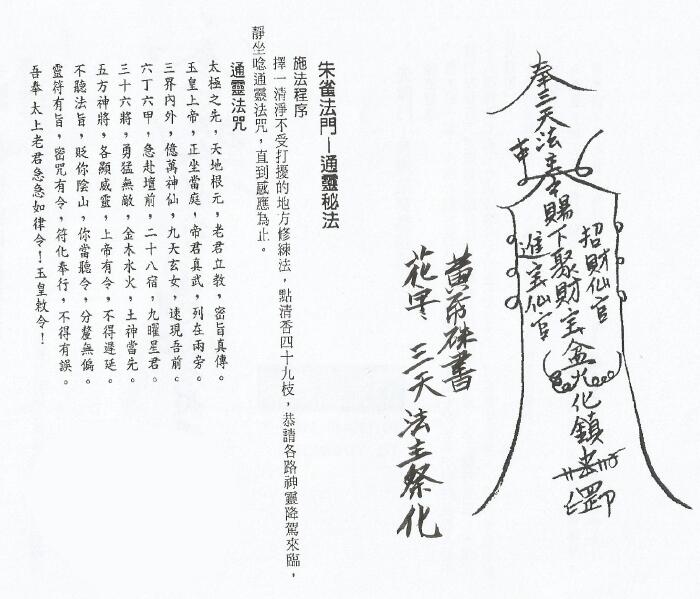 奉三天法主令賜下聚財宝盆火化鎮
招財仙官
進宝仙官
黄布硃書
花字 三天法主祭化
朱雀法門—通靈秘法
施法程序
擇一清淨不受打擾的地方修練法，點清香四十九枝，恭請各路神靈降駕來臨，
靜坐唸通靈法咒，直到感應為止。
通靈法咒
太極之先，天地根元，老君立教，密旨真傳。
玉皇上帝，正坐當庭，帝君真武，列在兩旁。
三界內外，億萬神仙，九天玄女，速現吾前。
六丁六甲，急赴壇前，二十八宿，九曜星君。
三十六將，勇猛無敵，金木水火，土神當先。
五方神將，各顯威靈，上帝有令，不得遲延。
不聽法旨，貶你陰山，你當聽令，分釐無偏。
靈符有旨，密咒有令，符化奉行，不得有誤。
吾奉 太上老君急急如律令！玉皇敕令！